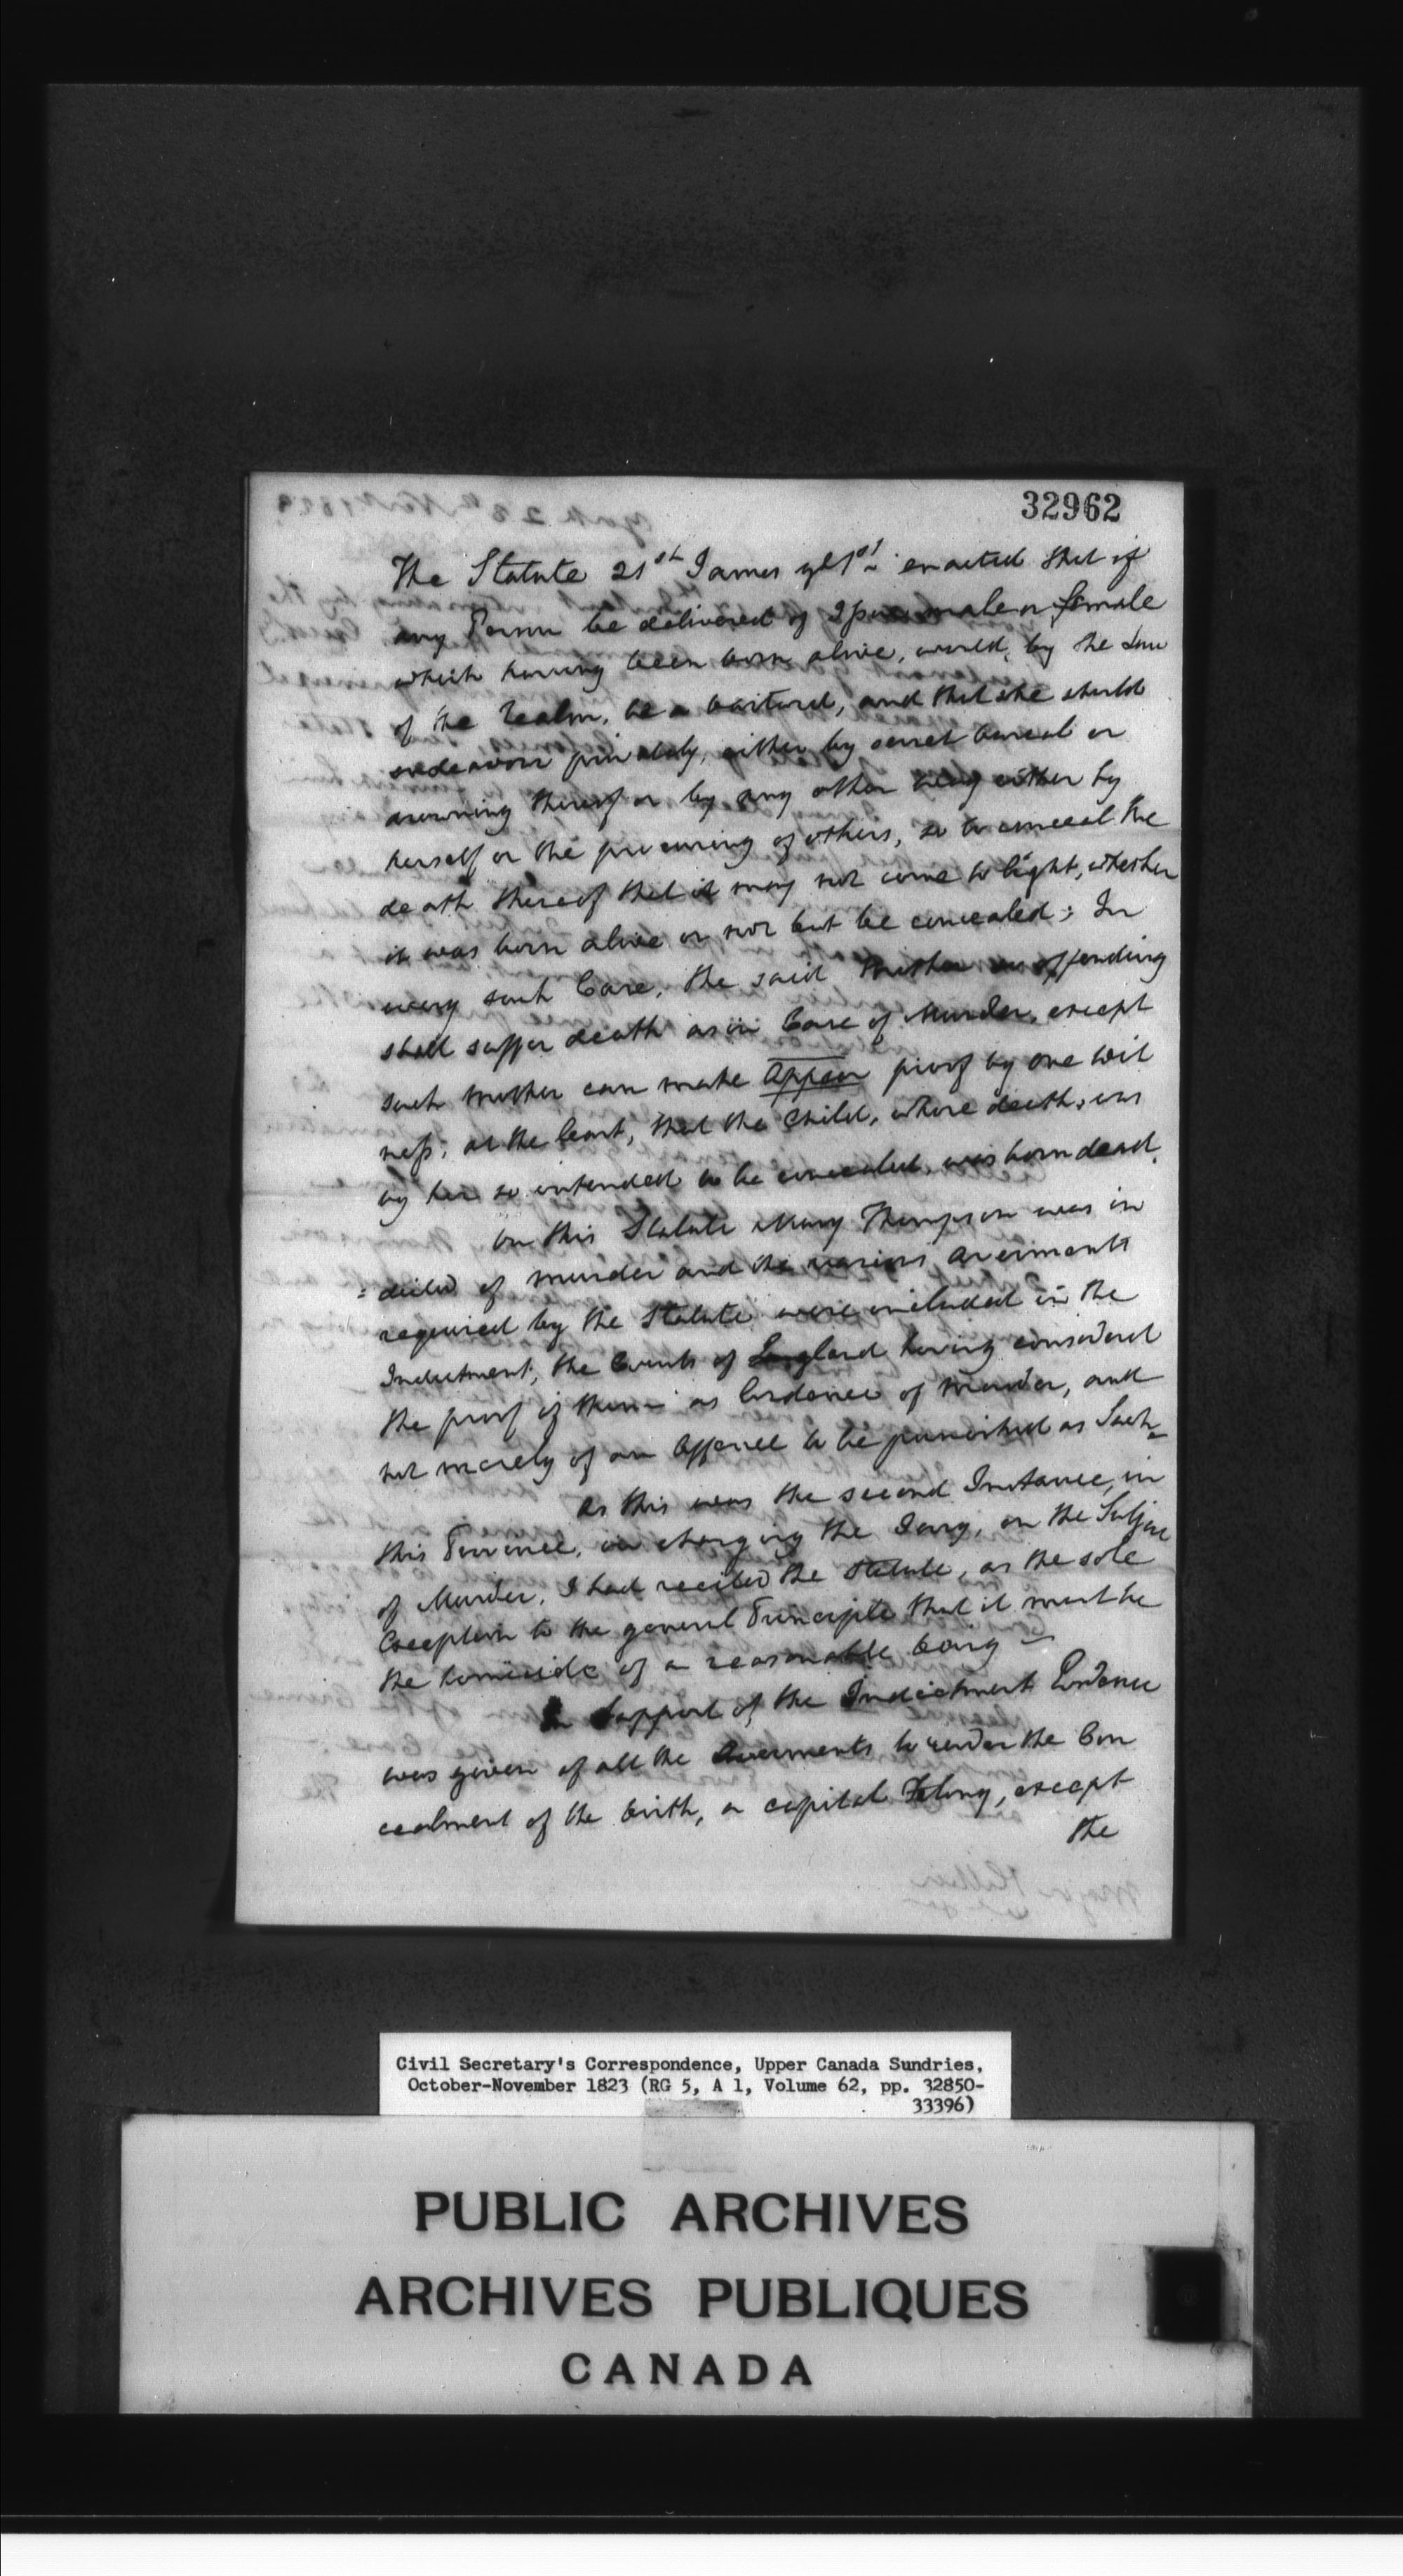 32962
The Statute 21st James ye 1st enacted that if
any Person be delivered of Issue male or female
which having been born alive, would, by the Law
of the Realm, be a bastard, and that she should
endeavour privately, either by secret burial or
drowning thereof or by any other way either by
herself or the procuring of others, so to conceal the
death thereof that it may not come to light, whether
it was born alive or not but be concealed; In
every such Case, the said Mother so offending
shall suffer death as in Case of Murder, except
such mother can make appear proof by one wit
ness, at the least, that the Child, whose death, was
by her so intended to be concealed, was born dead.
On this Statute Mary Thompson was in
=dicted of murder and the various averments
required by the Statute were included in the
Indictment, the Courts of England having considered
the proof of them as Evidence of Murder, and
not merely of an Offence to be punished as Such
As this was the second Instance, in
this Province, in charging the Jury, on the Subject
of Murder, I had recited the Statute, as the sole
Exception to the general Principle that it must be
the homicide of a reasonable being —
In Support of the Indictment Evidence
was given of all the Averments to render the Con
cealment of the birth, a capital Felony, except
the
Civil Secretary's Correspondence, Upper Canada Sundries,
October-November 1823 (RG 5, A 1, Volume 62, pp. 32850-
33396)
PUBLIC ARCHIVES
ARCHIVES PUBLIQUES
CANADA